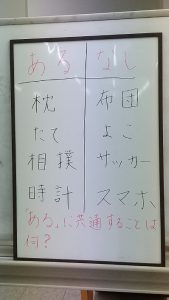 ある なし
枕 布団
たて よこ
相撲 サッカー
時計 スマホ
「ある」に共通することは
何?